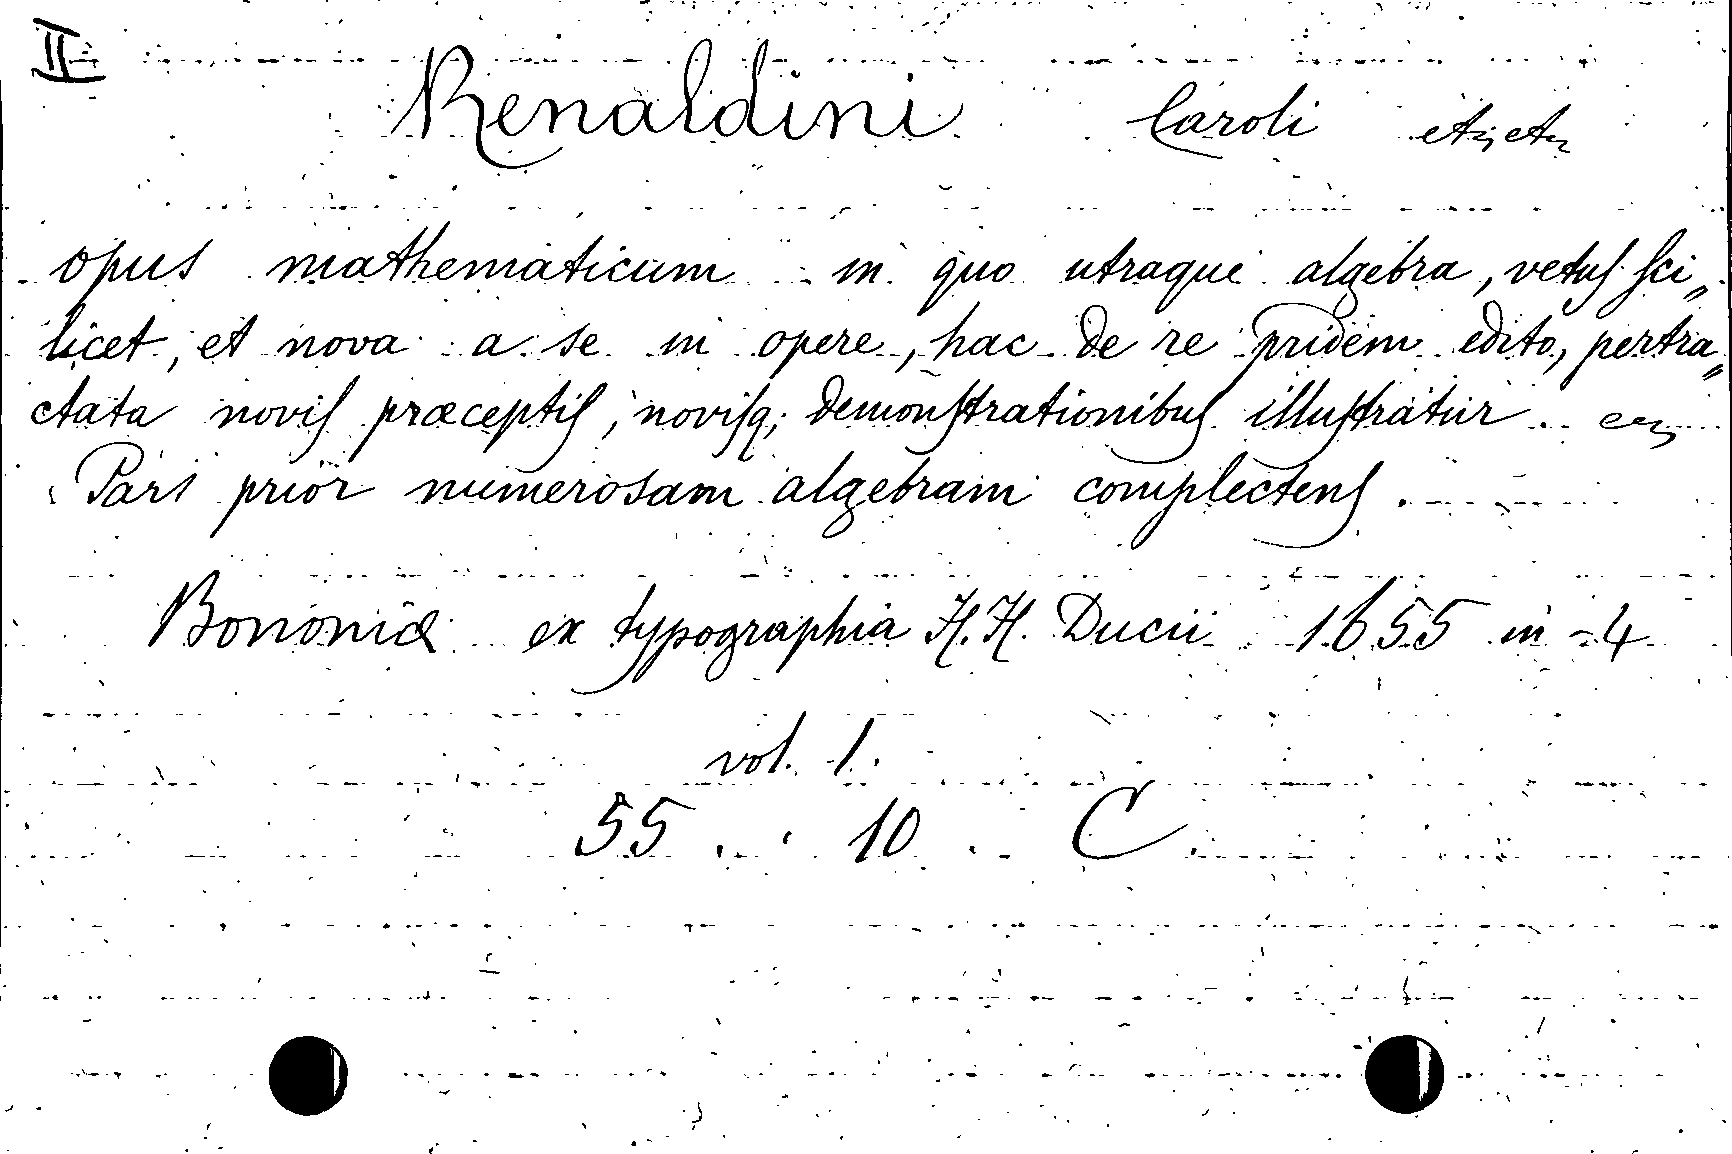 II
Renaldini Caroli etc, etc
opus mathematicum in quo utraque algebra, vetus sci„
licet, et nova a se in opere, hac de re pridem edito, pertra„
ctata novis præceptis, novisq; demonstrationibus illustratur.
Pars prior numerosam algebram complectens.
Bononiæ ex typographia H. H. Ducii 1655 in -4
vol. 1.
55 . . 10 . C.